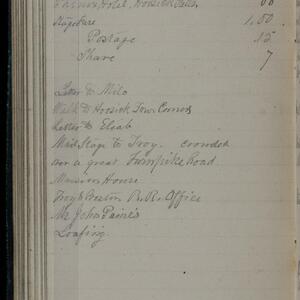 Hotel, Hoosick Falls 88
Stage fare 1,50
Postage 15
Share 7
Letter to Milo
Walk to Hoosick Four Corners
Letter to Eliab
Mail Stage to Troy. crowded
over a great Turnpike Road
Mansion House.
Troy & Boston R.R. Office
Mr John Paine's
Loafing.